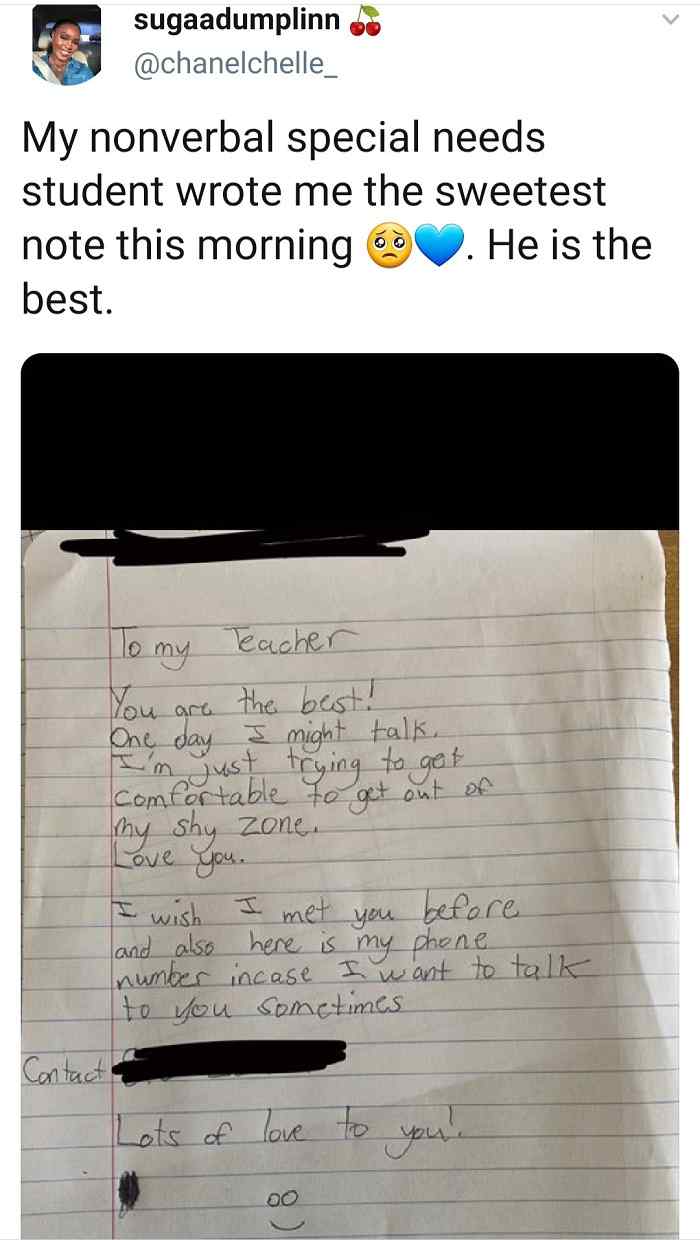 sugaadumplinn 🍒
@chanelchelle_
My nonverbal special needs
student wrote me the sweetest
note this morning 🥺💙. He is the
best.
To my Teacher
You are the best!
One day I might talk.
I'm just trying to get
comfortable to get out of
my shy zone.
Love you.
I wish I met you before
and also here is my phone
number incase I want to talk
to you sometimes
Contact
Lots of love to you!